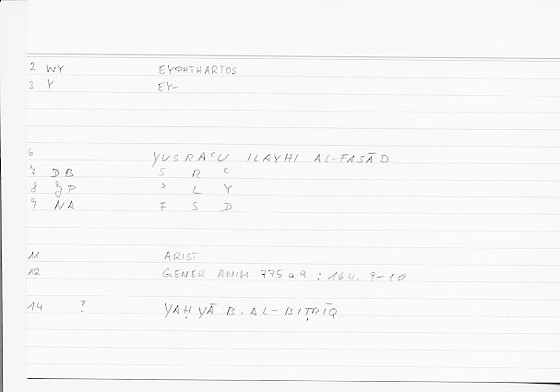 2 WY EYPHTHARTOS
3 Y EY-
6 YUSRAʿU ILAYHI AL-FASĀD
7 DB S R ʿ
8 P ʾ L Y
9 NA F S D
11 ARIST
12 GENER ANIM 775a9 : 164. 9-10
14 ? YAḤYĀ B. AL-BIṬRĪQ